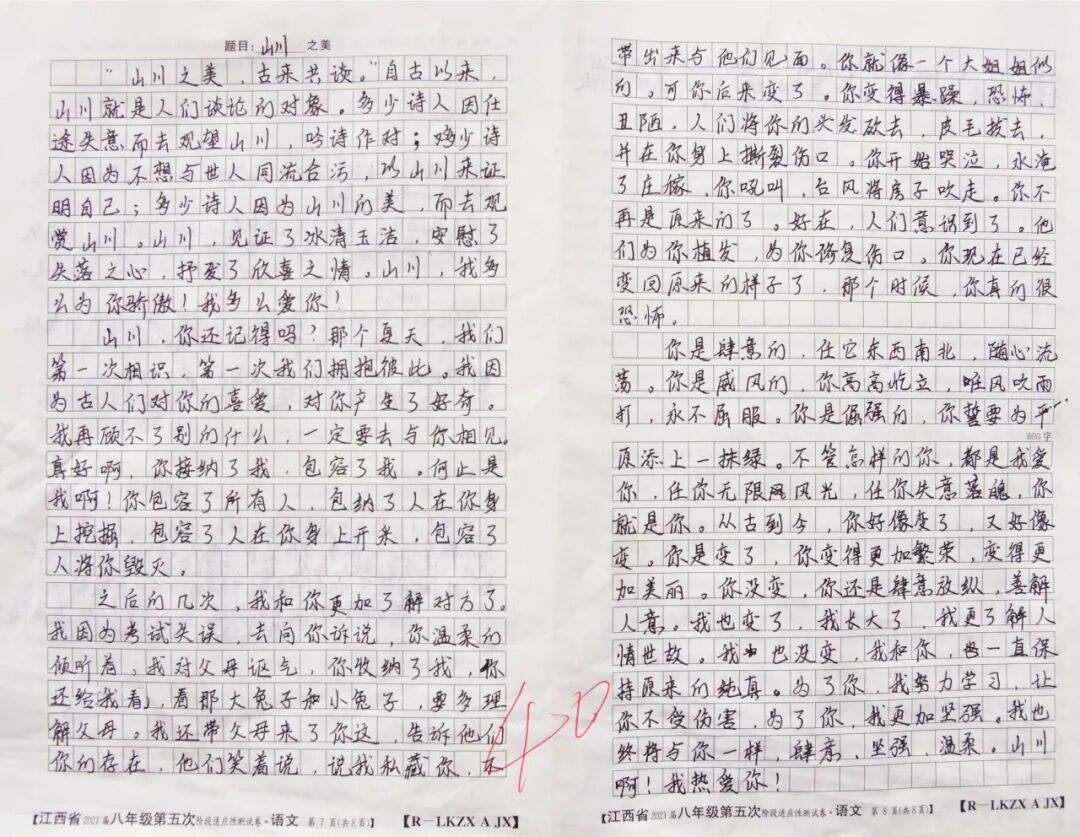 题目：山川 之美
“山川之美，古来共谈。”自古以来，
山川就是人们谈论的对象。多少诗人因仕
途失意而去观望山川，吟诗作对；多少诗
人因为不想与世人同流合污，以山川来证
明自己；多少诗人因为山川的美，而去观
赏山川。山川，见证了冰清玉洁，安慰了
失落之心，抒发了欣喜之情。山川，我多
么为你骄傲！我多么爱你！
山川，你还记得吗？那个夏天，我们
第一次相识，第一次我们拥抱彼此。我因
为古人们对你的喜爱，对你产生了好奇。
我再顾不了别的什么，一定要去与你相见。
真好啊，你接纳了我，包容了我。何止是
我啊！你包容了所有人，包纳了人在你身
上挖掘，包容了人在你身上开采，包容了
人将你毁灭。
之后的几次，我和你更加了解对方了。
我因为考试失误，去向你诉说，你温柔的
倾听着。我对父母讴气，你收纳了我，你
还给(我看)，看那大兔子和小兔子，要多理
解父母。我还带父母来了你这，告诉他们
你的存在，他们笑着说，说我私藏你，不
带出来与他们见面。你就像一个大姐姐似
的。可你后来变了。你变得暴躁，恐怖，
丑陋，人们将你的头发砍去，皮毛拔去，
并在你身上撕裂伤口。你开始哭泣，水淹
了庄稼，你吼叫，台风将房子吹走。你不
再是原来的了。好在，人们意识到了。他
们为你植发，为你修复伤口。你现在已经
变回原来的样子了，那个时候，你真的很
恐怖。
你是肆意的，任它东西南北，随心流
荡。你是威风的，你高高屹立，唯风吹雨
打，永不屈服。你是倔强的，你誓要为平
600字
原添上一抹绿。不管怎样的你，都是我爱
你，任你无限风光，任你失意落魄，你
就是你。从古到今，你好像变了，又好像
变。你是变了，你变得更加繁荣，变得更
加美丽。你没变，你还是肆意放纵，善解
人意。我也变了，我长大了，我更了解人
情世故。我也没变，我和你，一直保
持原来的纯真。为了你，我努力学习，让
你不受伤害，为了你，我更加坚强。我也
终将与你一样，肆意，坚强，温柔。山川
啊！我热爱你！
40
【江西省2021届八年级第五次阶段适应性测试卷·语文 第7页(共8页) 【R－LKZX A JX】
【江西省2021届八年级第五次阶段适应性测试卷·语文 第8页(共8页) 【R－LKZX A JX】